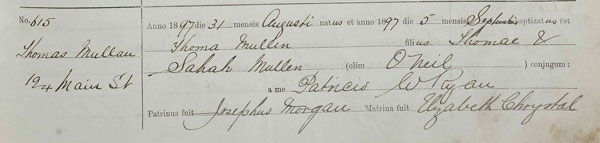 No. 615
Thomas Mullan
124 Main St
Anno 1897 die 31 mensis Augusti natus et anno 1897 die 5 mensis Septembris baptizatus est
Thoma Mullen filius Thomae &
Sahah Mullen (olim O'Neil) conjugum:
a me Patricio W Ryan
Patrinus fuit Josephus Morgan Matrina fuit Elizabeth Chrystal